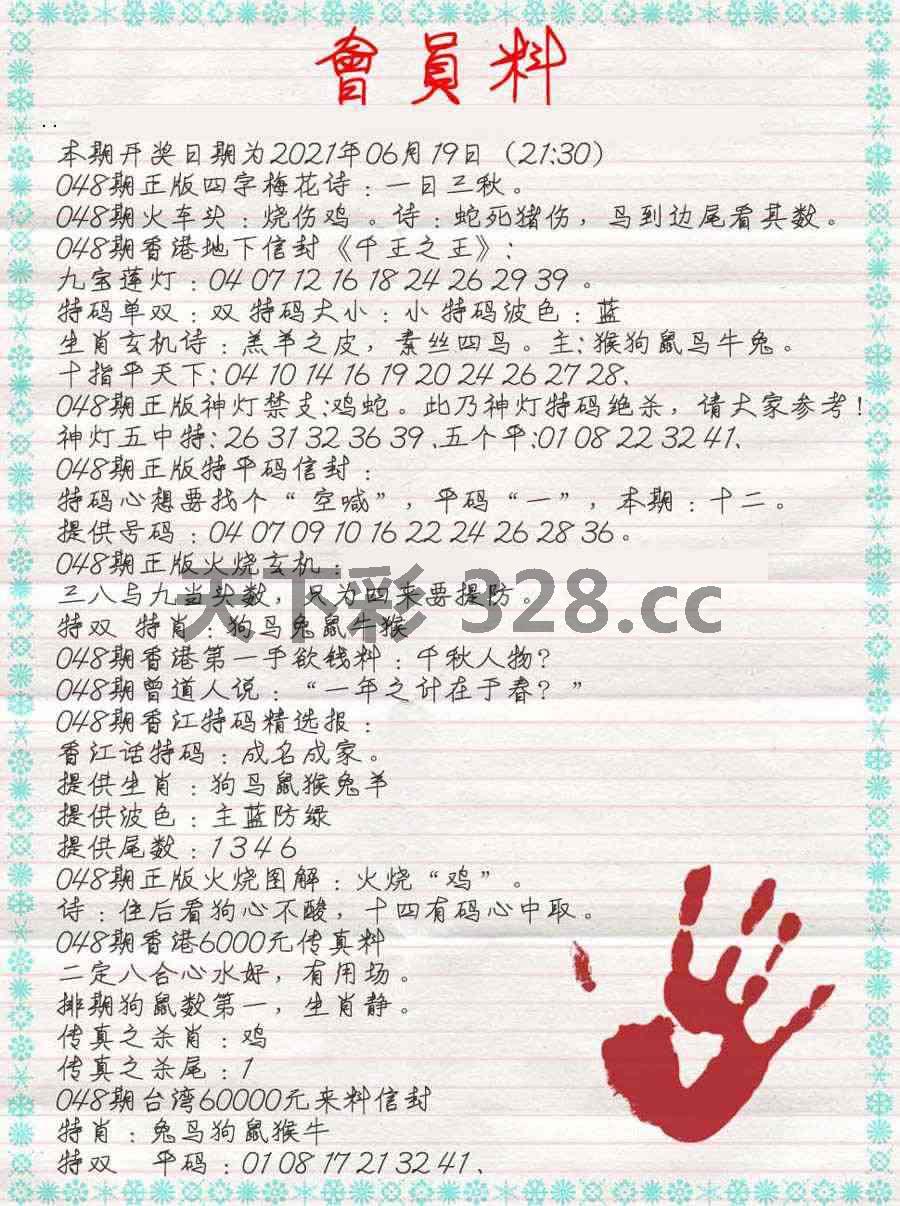 會員料
..
本期开奖日期为2021年06月19日（21:30）
048期正版四字梅花诗：一日三秋。
048期火车头：烧伤鸡 。诗：蛇死猪伤，马到边尾看其数。
048期香港地下信封《千王之王》：
九宝莲灯：04 07 12 16 18 24 26 29 39 。
特码单双：双 特码大小：小 特码波色：蓝
生肖玄机诗：羔羊之皮，素丝四马。主：猴狗鼠马牛兔。
十指平天下：04 10 14 16 19 20 24 26 27 28、
048期正版神灯禁支:鸡蛇。此乃神灯特码绝杀，请大家参考！
神灯五中特：26 31 32 36 39 、五个平:01 08 22 32 41、
048期正版特平码信封：
特码心想要找个“ 空喊”，平码“一”，本期：十二。
提供号码：04 07 09 10 16 22 24 26 28 36。
048期正版火烧玄机：
三八与九当头数，只为四来要提防。
天下彩 328.cc
特双 特肖：狗马兔鼠牛猴
048期香港第一手欲钱料：千秋人物？
048期曾道人说：“一年之计在于春？”
048期香江特码精选报：
香江话特码：成名成家。
提供生肖：狗马鼠猴兔羊
提供波色：主蓝防绿
提供尾数：1 3 4 6
048期正版火烧图解：火烧“鸡”。
诗：住后看狗心不酸，十四有码心中取。
048期香港6000元传真料
二定八合心水好，有用场。
排期狗鼠数第一，生肖静。
传真之杀肖：鸡
传真之杀尾：1
048期台湾60000元来料信封
特肖：兔马狗鼠猴牛
特双 平码：01 08 17 21 32 41、